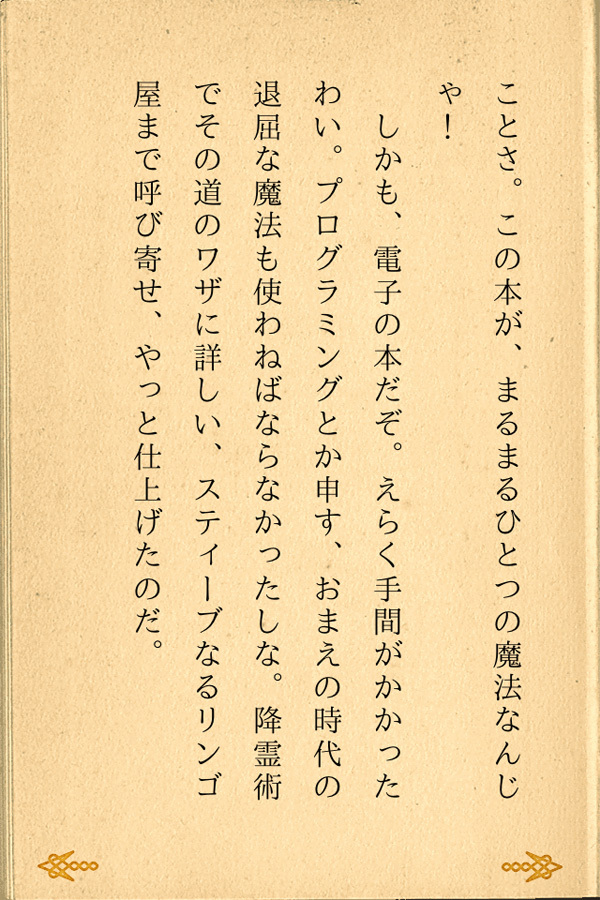 ことさ。この本が、まるまるひとつの魔法なんじ
ゃ!
しかも、電子の本だぞ。えらく手間がかかった
わい。プログラミングとか申す、おまえの時代の
退屈な魔法も使わねばならなかったしな。降霊術
でその道のワザに詳しい、スティーブなるリンゴ
屋まで呼び寄せ、やっと仕上げたのだ。